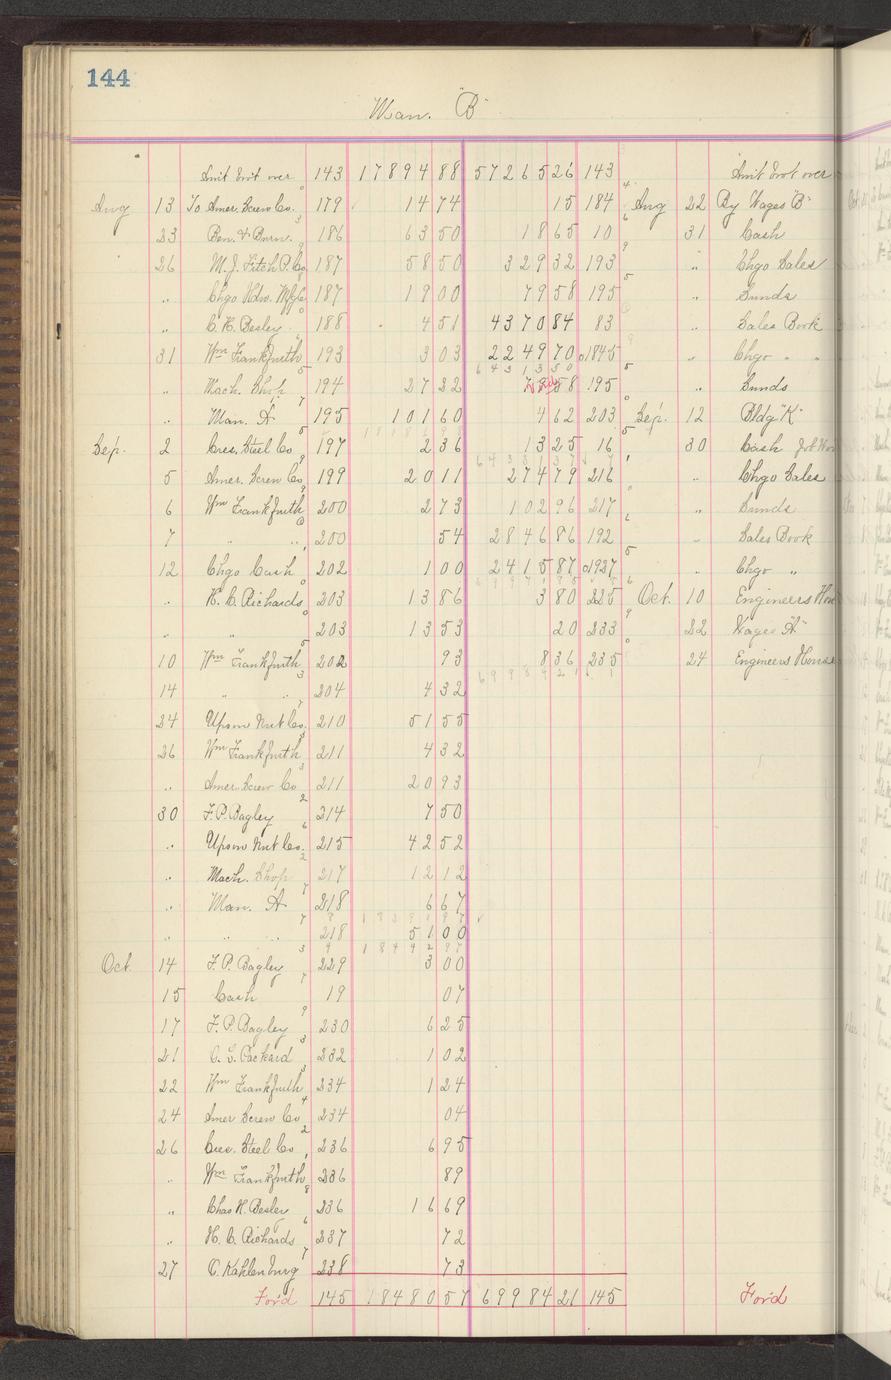 144
Man. "B"
Amt brot over 143 17894 88 57265 26 143 Amt brot over
Aug 13 To Amer. Screw Co. 179 14 74 15 184 Aug 22 By Wages "B"
23 Ben. & Burn. 186 63 50 18 65 10 31 Cash
26 M. J. Fitch P. Co 187 58 50 329 32 193 " Chgo Sales
" Chgo Hdw. Mfg Co 187 19 00 79 58 195 " Sunds
" C. H. Besley 188 4 51 4370 84 83 " Sales Book
31 Wm Frankfurth 193 3 03 2249 70 1845 " Chgo " "
" Mach. Shop 194 27 32 58 195 " Sunds
" Man. A 195 101 60 4 62 203 Sep. 12 Bldg "K"
Sep. 2 Cres. Steel Co 197 2 36 13 25 16 30 Cash
5 Amer. Screw Co 199 20 11 274 79 216 " Chgo Sales
6 Wm Frankfurth 200 2 73 102 96 217 " Sunds
7 " " 200 54 2846 86 192 " Sales Book
12 Chgo Cash 202 1 00 2415 87 1927 " Chgo "
" H. C. Richards 203 13 86 3 80 225 Oct. 10 Engineers
" " 203 13 53 20 233 22 Wages "A"
10 Wm Frankfurth 202 93 8 36 235 24 Engineers House
14 " " 204 4 32
24 Upson Nut Co. 210 51 55
26 Wm Frankfurth 211 4 32
" Amer. Screw Co 211 20 93
30 F. P. Bagley 214 7 50
" Upson Nut Co. 215 42 52
" Mach. Shop 217 12 12
" Man. A 218 6 67
" " " 218 51 00
Oct. 14 F. P. Bagley 229 3 00
15 Cash 19 07
17 F. P. Bagley 230 6 25
21 O. S. Packard 232 1 02
22 Wm Frankfurth 234 1 24
24 Amer Screw Co 234 04
26 Cres. Steel Co 236 6 95
" Wm Frankfurth 236 89
" Chas H. Besley 236 16 69
" H. C. Richards 237 72
27 C. Kahlenburg 238 73
Ford 145 18480 57 69984 21 145 Ford